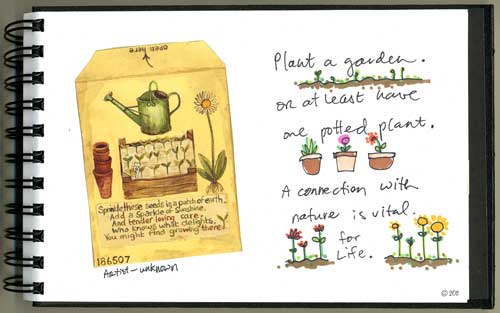 open here
Sprinkle these seeds in a patch of earth.
Add a sparkle of sunshine,
And tender loving care.
Who knows what delights,
You might find growing there!
186507
Artist - unknown
Plant a garden.
or at least have
one potted plant.
A connection with
nature is vital.
for
Life.